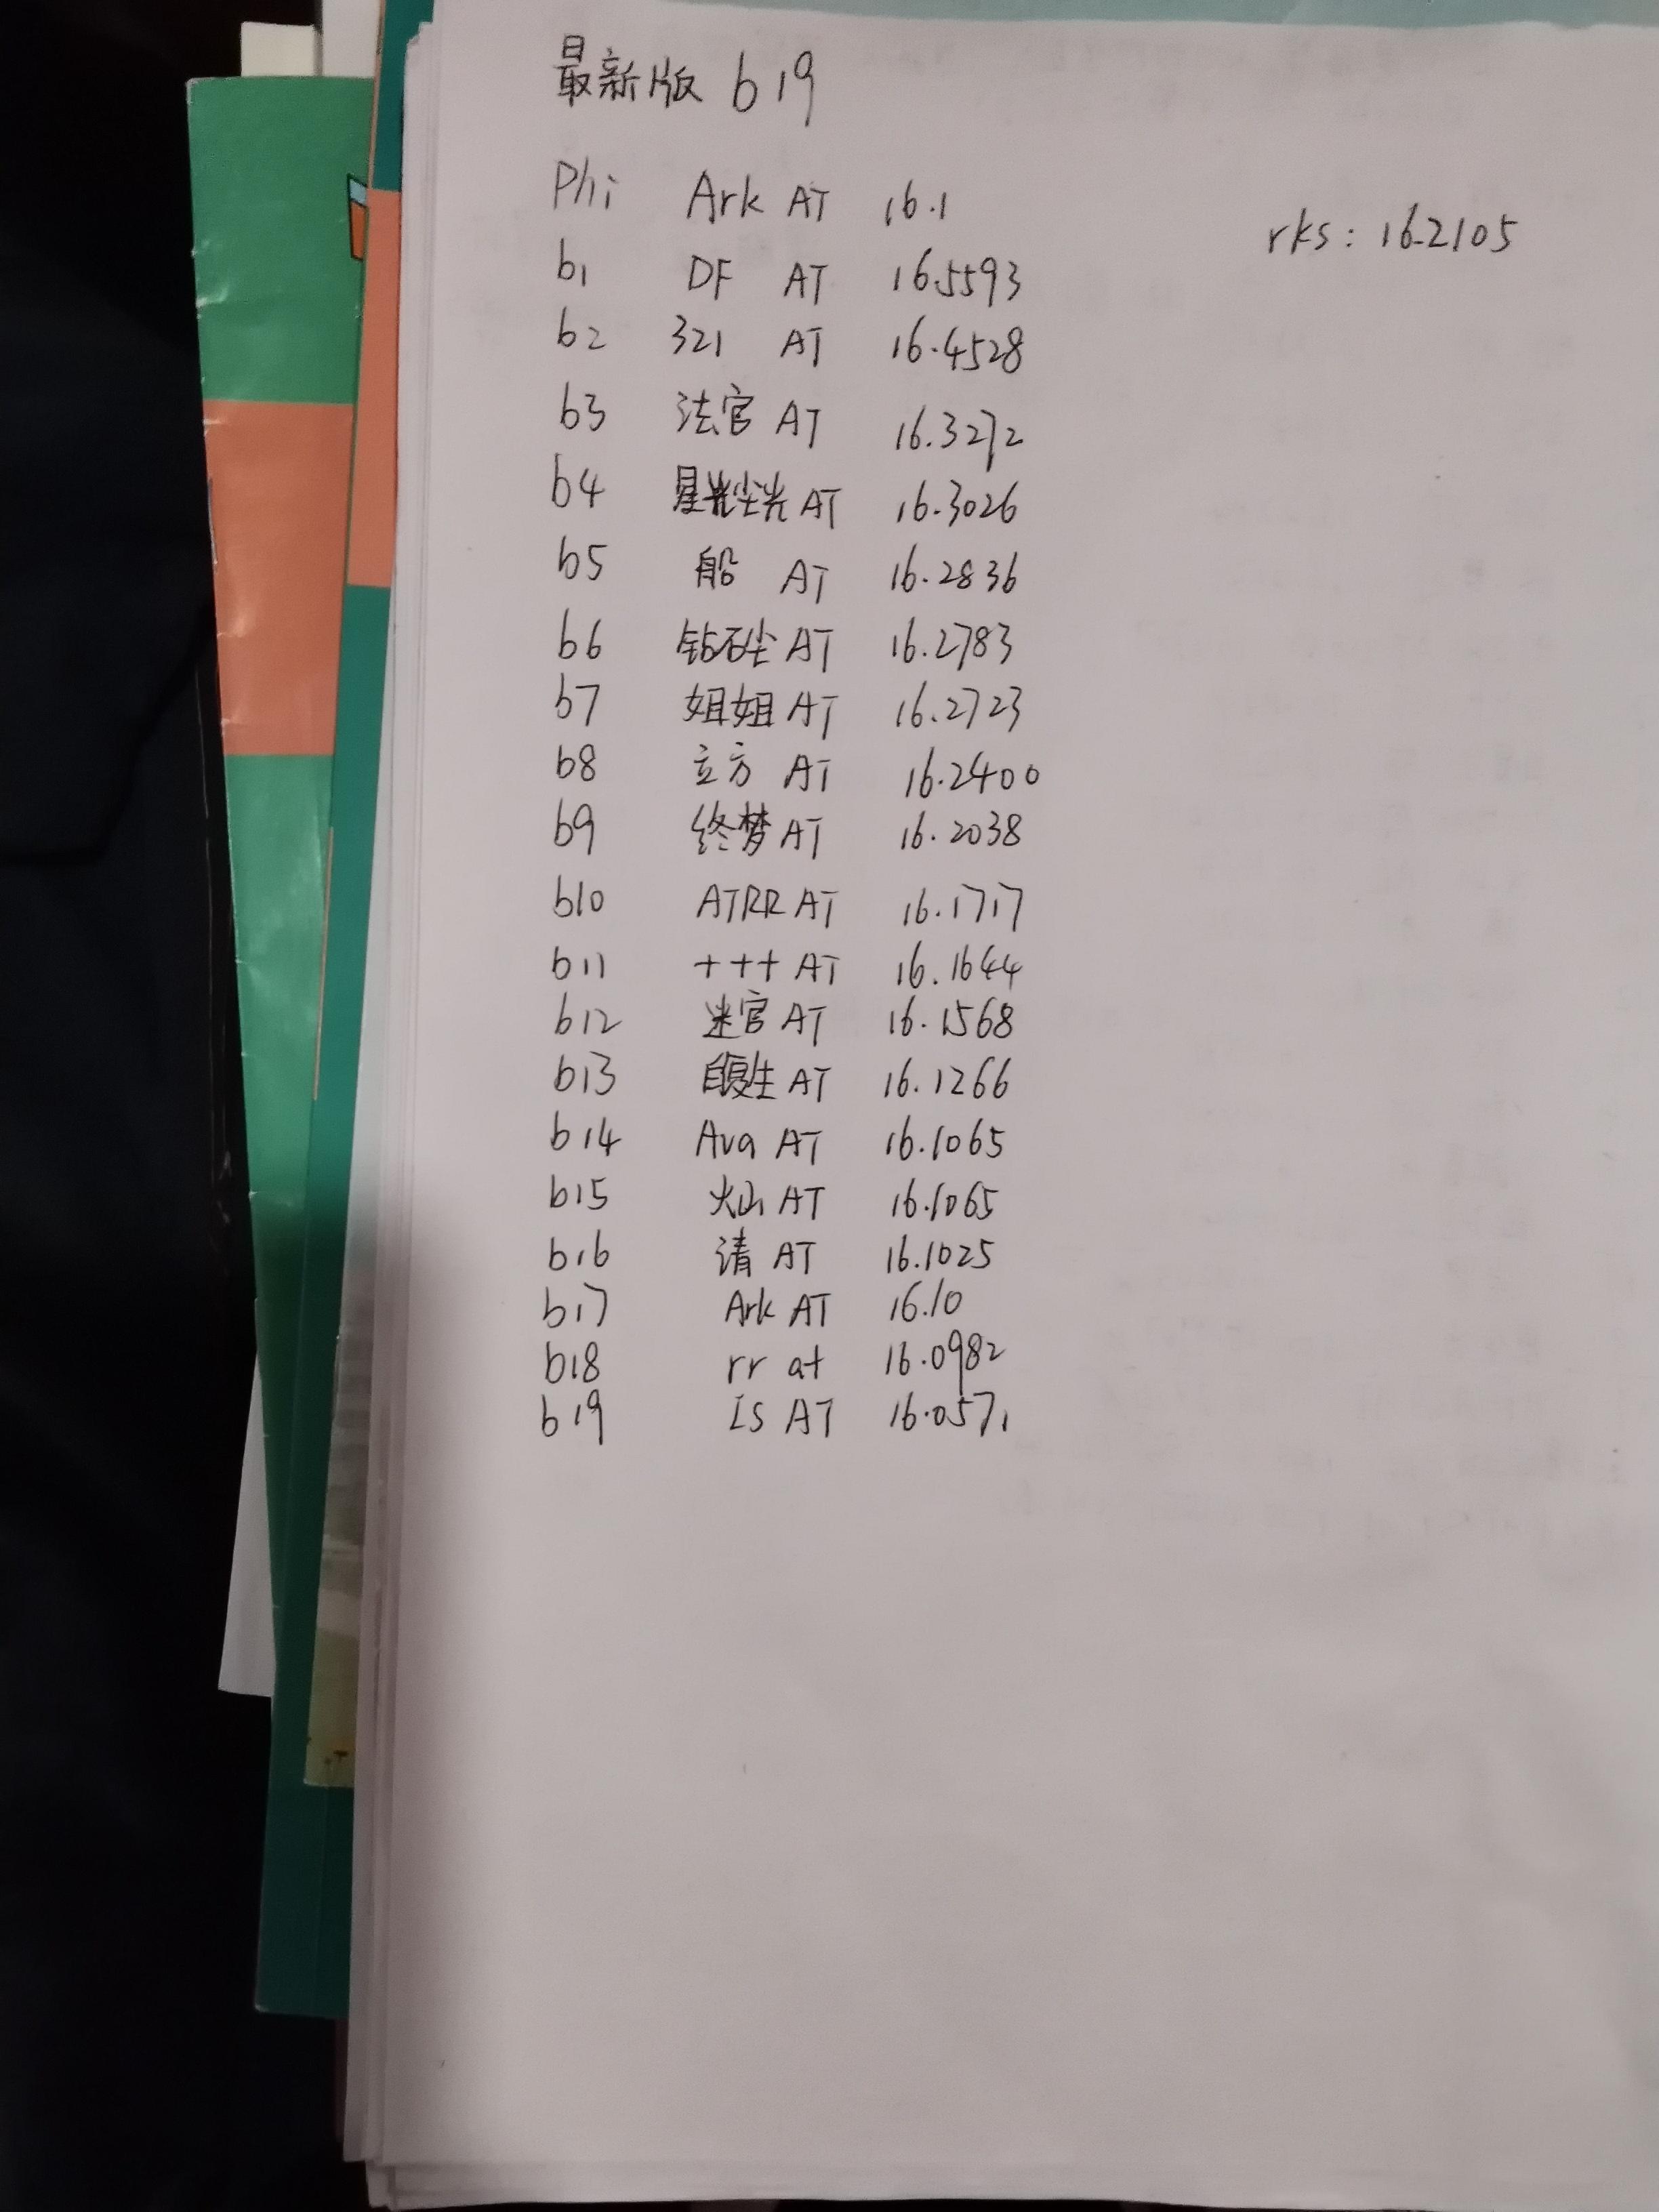 最新版 b19
Phi Ark AT 16.1
rks: 16.2105
b1 DF AT 16.5593
b2 321 AT 16.4528
b3 法官 AT 16.3272
b4 星光尘光 AT 16.3026
b5 船 AT 16.2836
b6 钻石尘 AT 16.2783
b7 姐姐 AT 16.2723
b8 立方 AT 16.2400
b9 终梦 AT 16.2038
b10 ATRR AT 16.1717
b11 +++ AT 16.1644
b12 迷宫 AT 16.1568
b13 自复生 AT 16.1266
b14 Ava AT 16.1065
b15 火山 AT 16.1065
b16 请 AT 16.1025
b17 Ark AT 16.10
b18 rr at 16.0982
b19 IS AT 16.0571